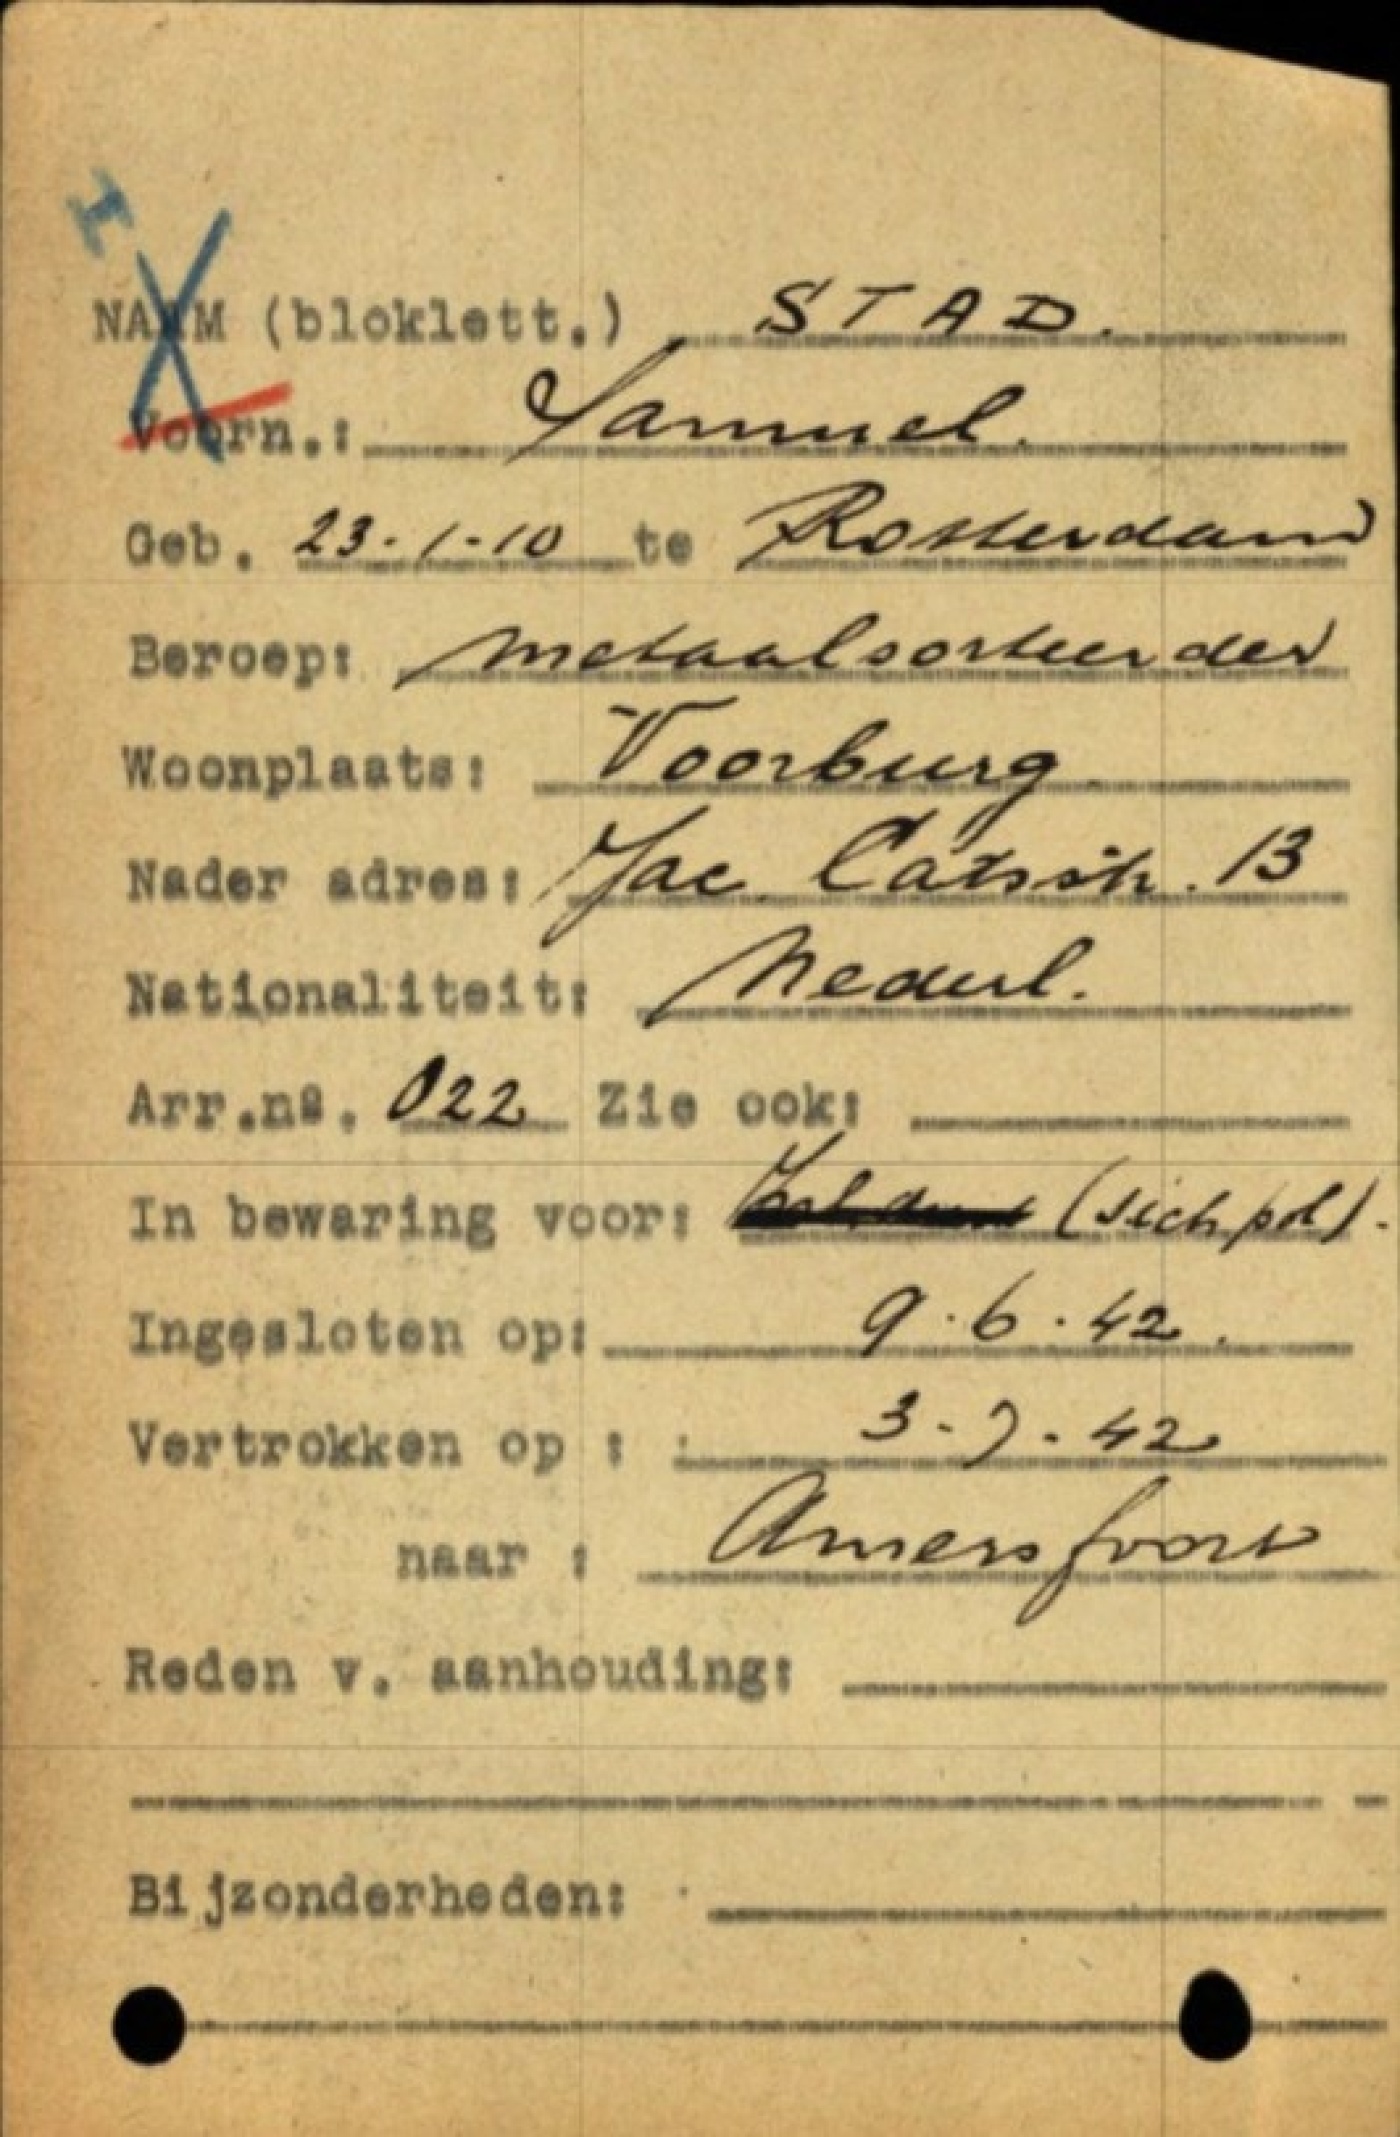 I
X
NAAM (bloklett.) STAD.
Voorn.: Samuel.
Geb. 23-1-10 te Rotterdam
Beroep: metaalsorteerder
Woonplaats: Voorburg
Nader adres: Jac. Catsstr. 13
Nationaliteit: Nederl.
Arr.no. 022 Zie ook:
In bewaring voor: (Sich.pol).
Ingesloten op: 9.6.42.
Vertrokken op : 3-7-42
naar : Amersfoort
Reden v. aanhouding:
Bijzonderheden: